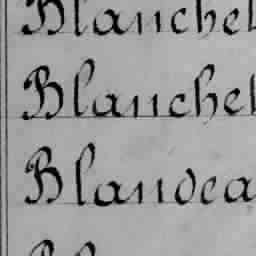 Blanchet
Blanchet
Blandea